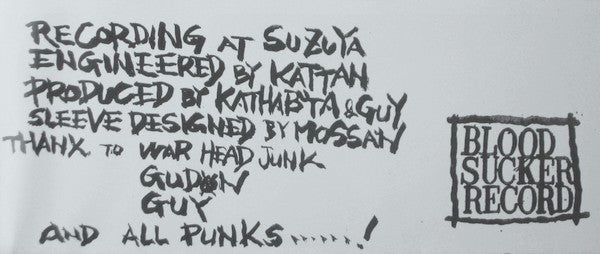 RECORDING AT SUZUYA
ENGINEERED BY KATTAN
PRODUCED BY KATHABUTA & GUY
SLEEVE DESIGNED BY MOSSAN
THANX TO WAR HEAD JUNK
GUDON
GUY
AND ALL PUNKS......!
BLOOD
SUCKER
RECORD